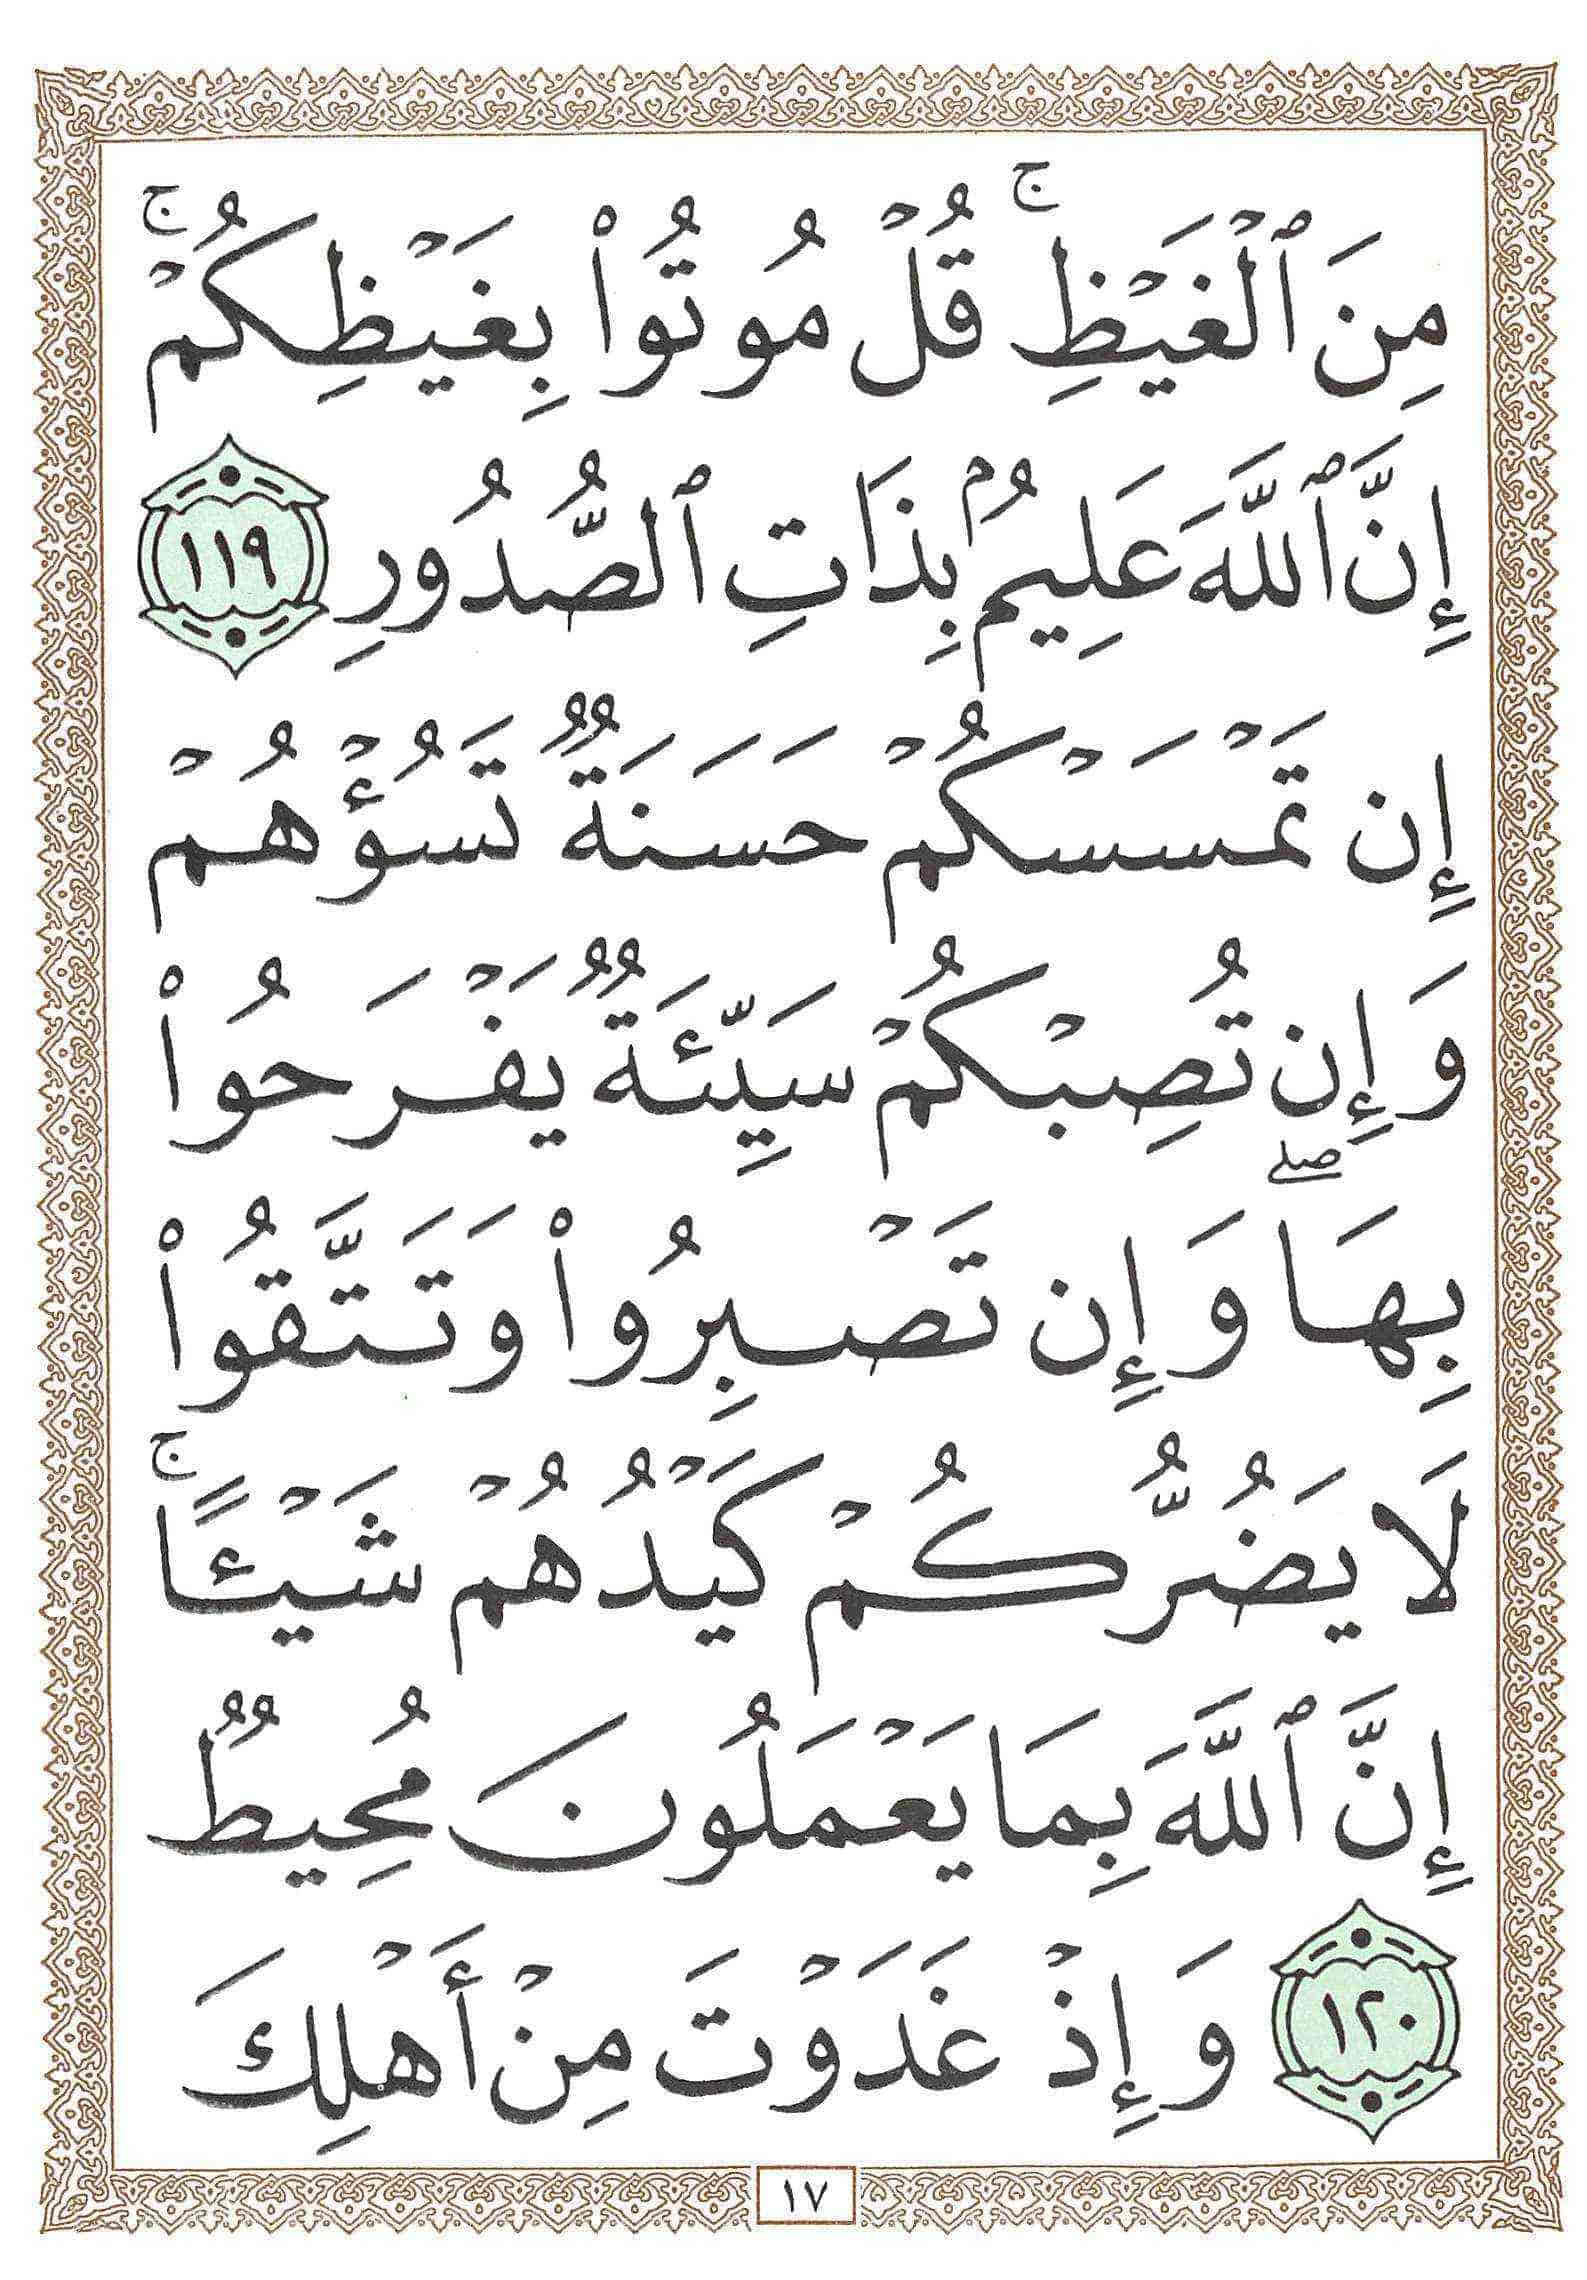 مِنَ ٱلْغَيْظِ ۚ قُلْ مُوتُوا۟ بِغَيْظِكُمْ ۚ
إِنَّ ٱللَّهَ عَلِيمٌۢ بِذَاتِ ٱلصُّدُورِ ١١٩
إِن تَمْسَسْكُمْ حَسَنَةٌ تَسُؤْهُمْ
وَإِن تُصِبْكُمْ سَيِّئَةٌ يَفْرَحُوا۟
بِهَا ۖ وَإِن تَصْبِرُوا۟ وَتَتَّقُوا۟
لَا يَضُرُّكُمْ كَيْدُهُمْ شَيْـًٔا ۚ
إِنَّ ٱللَّهَ بِمَا يَعْمَلُونَ مُحِيطٌ
١٢٠ وَإِذْ غَدَوْتَ مِنْ أَهْلِكَ
١٧